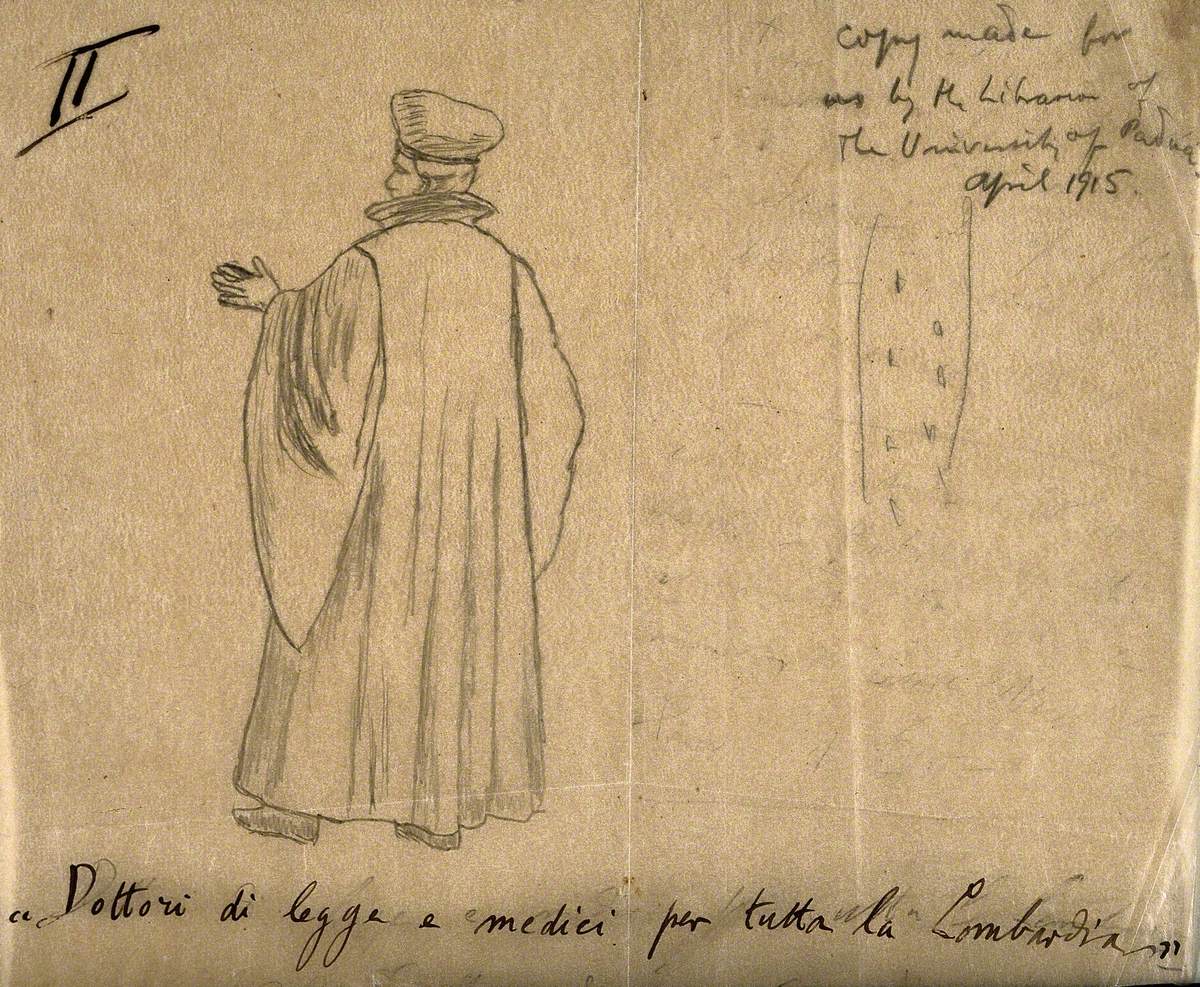 II
copy made for
us by the Librarian of
the University of Padua
April 1915.
"Dottori di legge e medici per tutta la Lombardia"